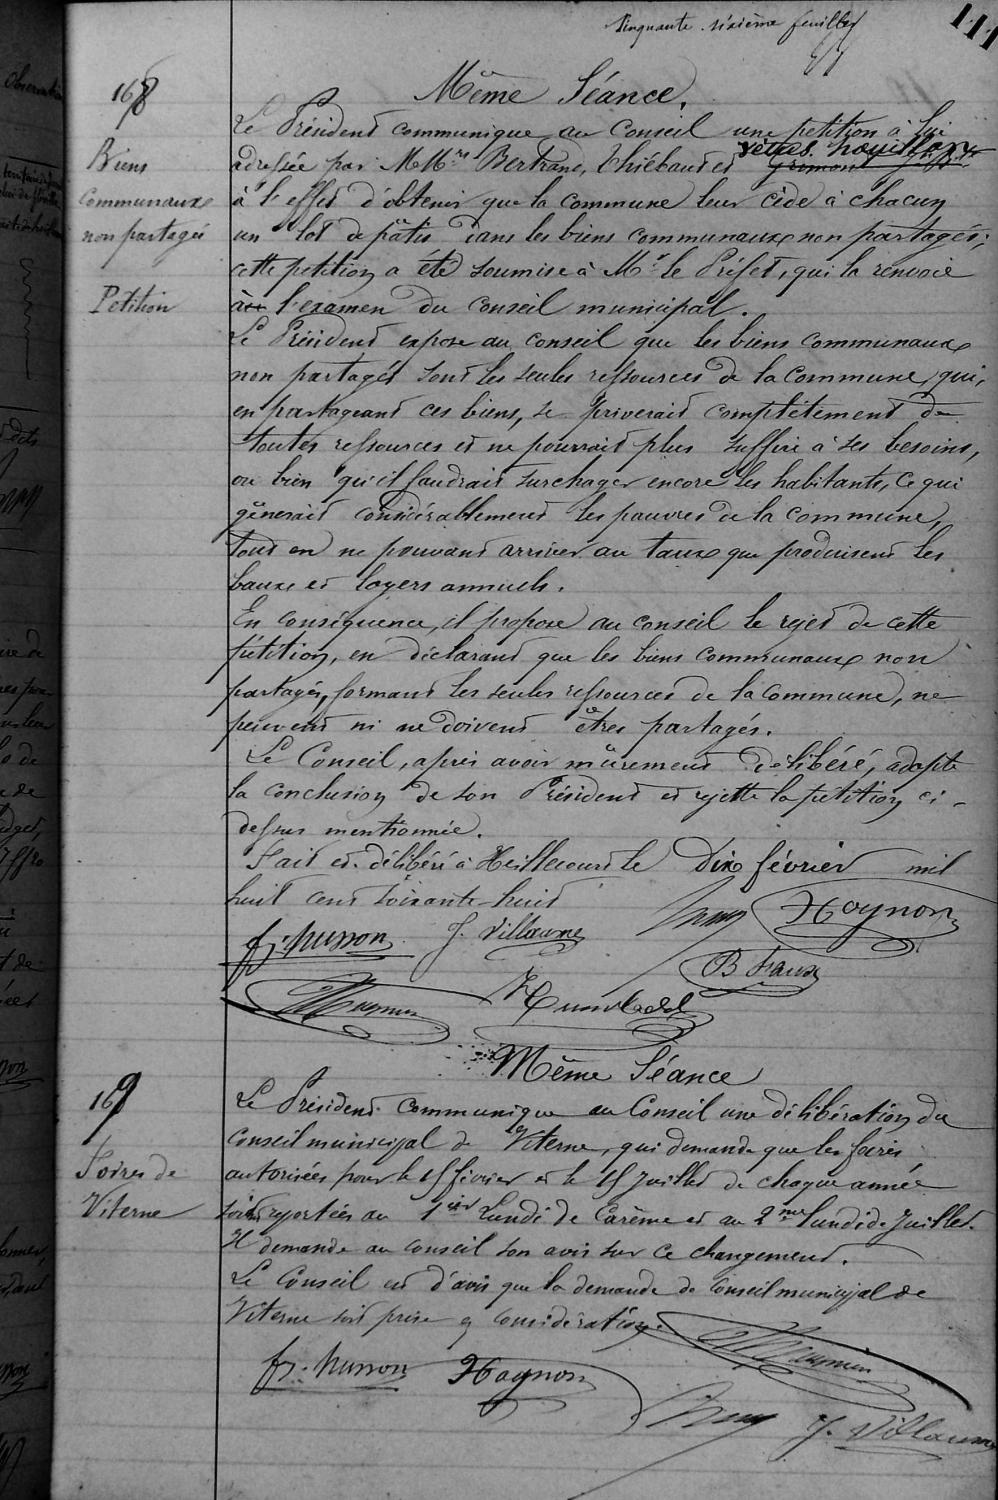 Cinquante-sixième feuillet
111
168
Même Séance.
Biens
Communaux
non partagés
Petition
Le Président communique au Conseil une petition à lui
adressée par M.Mrs Bertrand, Thiébaut et
à l'effet d'obtenir que la commune leur cède à chacun
un lot de pâtis dans les biens communaux non partagés;
cette petition a été soumise à Mr le Préfet, qui la renvoie
à l'examen du conseil municipal.
Le Président expose au conseil que les biens communaux
non partagés sont les seules ressources de la commune, qui,
en partageant ces biens, se priverait complètement de
toutes ressources et ne pourrait plus suffire à ses besoins,
ou bien qu'il faudrait surchager encore les habitants, ce qui
gênerait considérablement les pauvres de la commune,
tout en ne pouvant arriver au taux que produisent les
baux et loyers annuels.
En conséquence, il propose au conseil le rejet de cette
pétition, en déclarant que les biens communaux non
partagés, formant les seules ressources de la commune, ne
peuvent ni ne doivent êtres partagés.
Le Conseil, après avoir mûrement délibéré, adopte
la conclusion de son Président et rejette la pétition ci-
dessus mentionnée.
Fait et délibéré à Heillecourt le Dix février mil
huit cent soixante-huit
Hoynon
husson J. Villaume
B Faux
Humblot
169
Même Séance
Foires de
Viterne
Le Président communique au Conseil une délibération du
Conseil municipal de Viterne, qui demande que les foires
autorisées pour le 15 février et le 15 Juillet de chaque année
soient reportées au 1ier Lundi de Carême et au 2me lundi de Juillet.
Il demande au conseil son avis sur ce changement.
Le Conseil est d'avis que la demande de Conseil municipal de
Viterne soit prise en considération.
husson Hoynon
J. Villaume